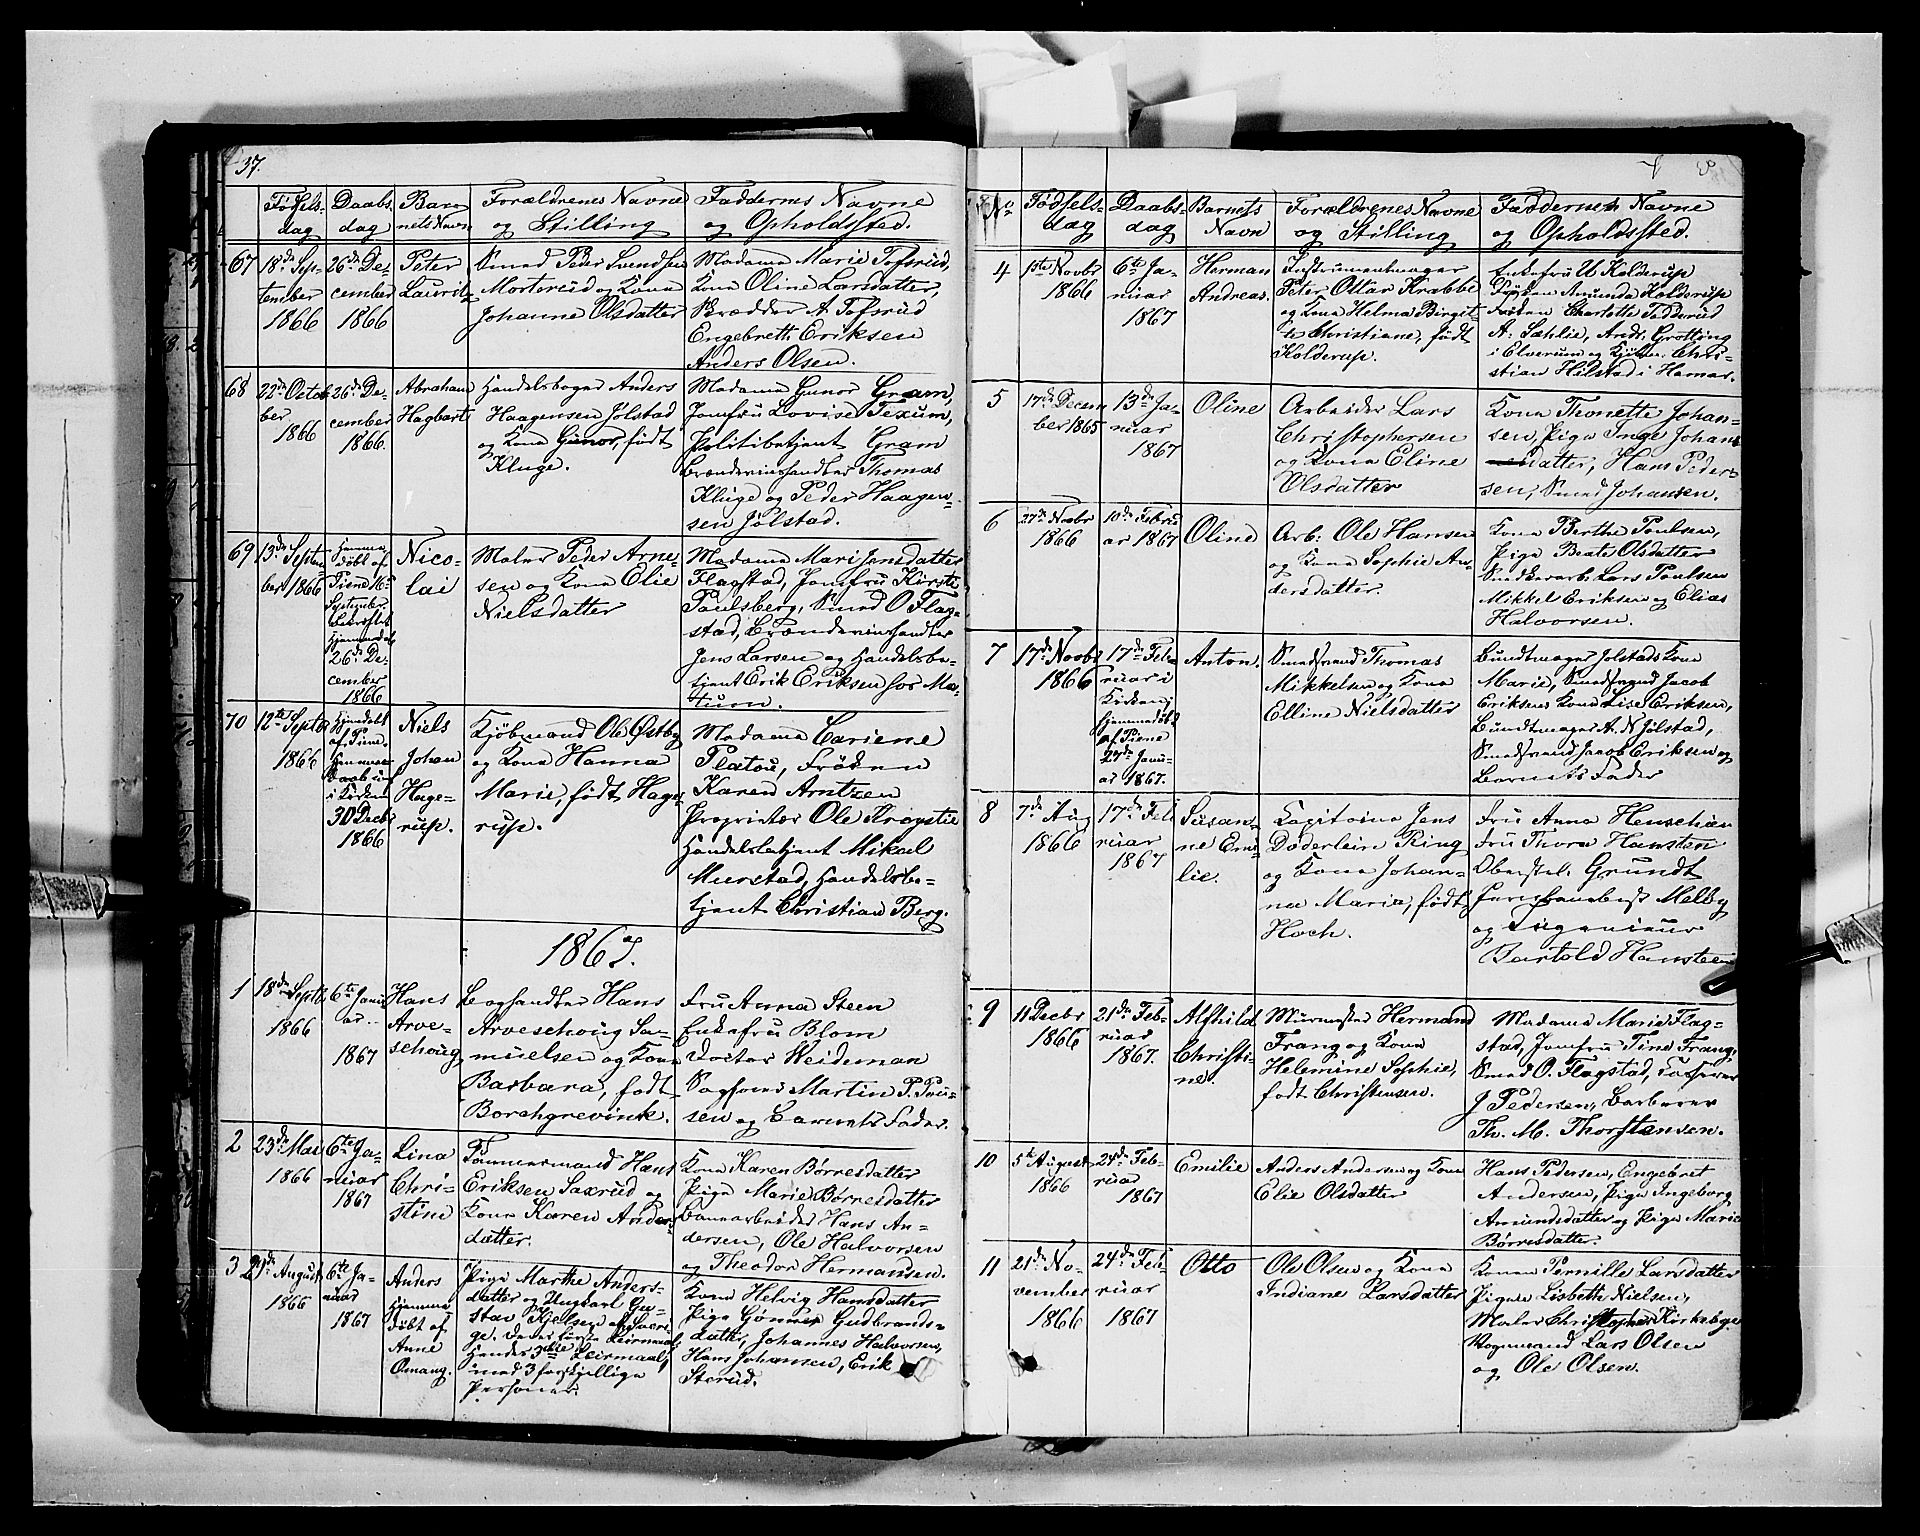 37.
Fødsels-
dag
Daabs-
dag
Bar-
nets Navn
Forældrenes Navne
og Stilling
Faddernes Navne
og Opholdssted.
67
18de Sep-
tember
1866
26de De-
cember
1866
Peter
Laurits
Smed Peder Svendsen
Morterud og Kona
Johanne Olsdatter
Madame Marie Tofsrud,
Kona Oline Larsdatter,
Skrædder A. Tofsrud
Engebrett Eriksen
Anders Olsen.
68
22de Octo-
ber
1866
26de De-
cember
1866.
Abraham
Hagbart
Handelsborger Anders
Haagensen Jølstad
og Kona Gunor, født
Kluge.
Madame Gunor Gram,
Jomfru Lovise Texum,
Politibetjent Gram
Brændevinshandler Thomas
Kluge og Peder Haagen-
sen Jølstad.
69
13de Septem-
ber 1866
Hjemme
døbt af
Piene 16de
September
Bekræftet
Hjemmedaab
26de De-
cember
1866
Nico-
lai
Maler Peder Arne-
sen og Kona Elie
Nielsdatter
Madame Mari Jensdatter
Flagstad, Jomfru Kirsti
Paulsberg, Smed O Flag-
stad, Brændevinshandler
Jens Larsen og Handelsbe-
tjent Erik Eriksen hos Ma-
tum.
70
12te Septbr
1866
Hjemdøbt
af Piene.
Hjemme
daab
i Kirken
30 Decbr
1866
Niels
Johan
Hage-
rup.
Kjøbmand Ole Østby
og Kona Hanna
Marie, født Hage-
rup.
Madame Cariene
Platou, Frøken
Karen Arntzen
Proprietær Ole Kropstie
Handelsbetjent Mikael
Mierstad, Handelsbe-
tjent Christian Berg.
1867.
1
18de Septb
1866
6te Janu-
ar
1867
Hans
Arve-
schoug
Boghandler Hans
Arveschoug Sa-
muelsen og Kona
Barbara, født
Borchgrevink.
Fru Anna Steen
Enkefru Blom
Doctor Weideman
Sagfører Martin P. Pou-
sen og Barnets Fader.
2
23de Mai
1866
6te Ja-
nuar
1867
Lina
Chri-
stine
Tømmermand Hans
Eriksen Saxrud og
Kona Karen Anders-
datter.
Kona Karen Børresdatter
Pige Marie Børresdatter
Banearbeider Hans An-
dersen, Ole Halvorsen
og Theodor Hermansen.
3
29de August
1866
6te Ja-
nuar
1867
Anders
Hjemme
døbt af
Anne
Omang.
Pige Marthe Anders-
datter og Ungkarl Gu-
stav Kjelsen af Sveri-
ge. Deres første Leirmaal,
hendes 3die Leirmaal,
med 3 forskjellige
Personer.
Kona Helvig Hansdatter
Pige Gønner Gudbrands-
datter, Johannes Halvorsen,
Hans Johansen, Erik
Storud.
No
Fødsels-
dag
Daabs-
dag
Barnets
Navn
Forældrenes Navne
og Stilling
Faddernes Navne
og Opholdssted.
4
1ste Novbr
1866
6te Ja-
nuar
1867
Herman
Andreas.
Instrumentmager
Peter Ottar Krabbe
og Kona Helma Birgit-
te Christiane, født
Holderup.
Enkefru U Holderup
Frøken Amunda Holderup
Frøken Charlotte Fadderud
A. Sæhlie, Andr. Grotting
i Elverum og Kjøbm. Chri-
stian Hilstad i Hamar.
5
17de Decem-
ber 1865
13de Ja-
nuar
1867
Oline
Arbeider Lars
Christophersen
og Kona Eline
Olsdatter
Kona Thonette Johan-
sen, Pige Inge Johans-
datter, Hans Peder-
sen, Smed Johansen.
6
27de Novbr
1866
10de Febru-
ar 1867
Oline
Arb: Ole Hansen
og Kona Sophie An-
dersdatter.
Kona Berthe Poulsen,
Pige Beate Olsdatter
Snedkerarb. Lars Poulsen
Mikkel Eriksen og Elias
Halvorsen.
7
17de Novbr
1866
17de Feb-
ruar i
Kirken,
hjemmedøbt
af Piene
27de Janu-
ar 1867.
Anton.
Smedsvend Thomas
Mikkelsen og Kona
Elline Nielsdatter
Bundtmager Jølstads Kona
Marie, Smedsvend Jacob
Eriksens Kona Lise Eriksen,
Bundtmager A. N Jølstad,
Smedsvend Jacob Eriksen og
Barnets Fader
8
7de Aug
1866
17de Feb
ruar
1867
Susan-
ne Emi-
lie.
Capitaine Jens
Døderlein Ring
og Kona Johan-
na Maria, født
Hoch.
Fru Anna Henschien
Fru Thora Hansten
Oberstl. Grundt
Jernbanebest Melby
og Ingenieur
Bartold Hansteen
9
11 Decbr
1866
21de Feb-
ruar
1867.
Alfhild
Christi-
ne.
Murmester Hermand
Frang og Kona
Helemine Sophie,
født Christensen.
Madame Marie Flag-
stad, Jomfru Tine Frang,
Smed O. Flagstad,
J Pedersen, Barberer
Th. M. Thorstensen.
10
5te August
1866
24de Feb-
ruar
1867
Emilie
Anders Andersen og Kona
Elie Olsdatter
Hans Pedersen, Engebret
Andersen, Pige Ingeborg
Amundsdatter og Pige Marie
Børresdatter.
11
21de No-
vember
1866
24de Feb-
ruar
1867
Otto
Ole Olsen og Kona
Indiane Larsdatter
Konen Pernille Larsdatter
Pigen Lisbeth Nielsen,
Maler Christopher Kirkeby
Vognmand Lars Olsen
og Ole Olsen.